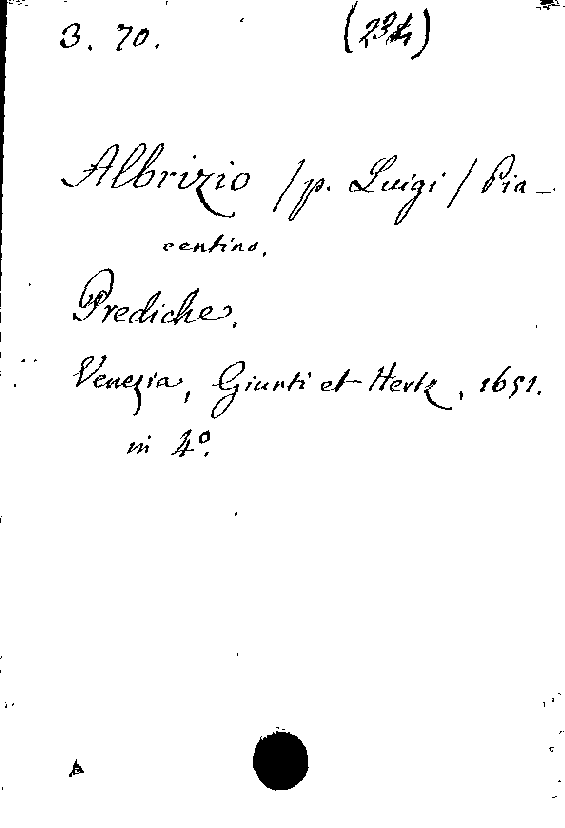 3. 70. (234)
Albrizio /p. Luigi/ Pia-
centino.
Prediche.
Venezia, Giunti et Hertz, 1651.
in 4°.